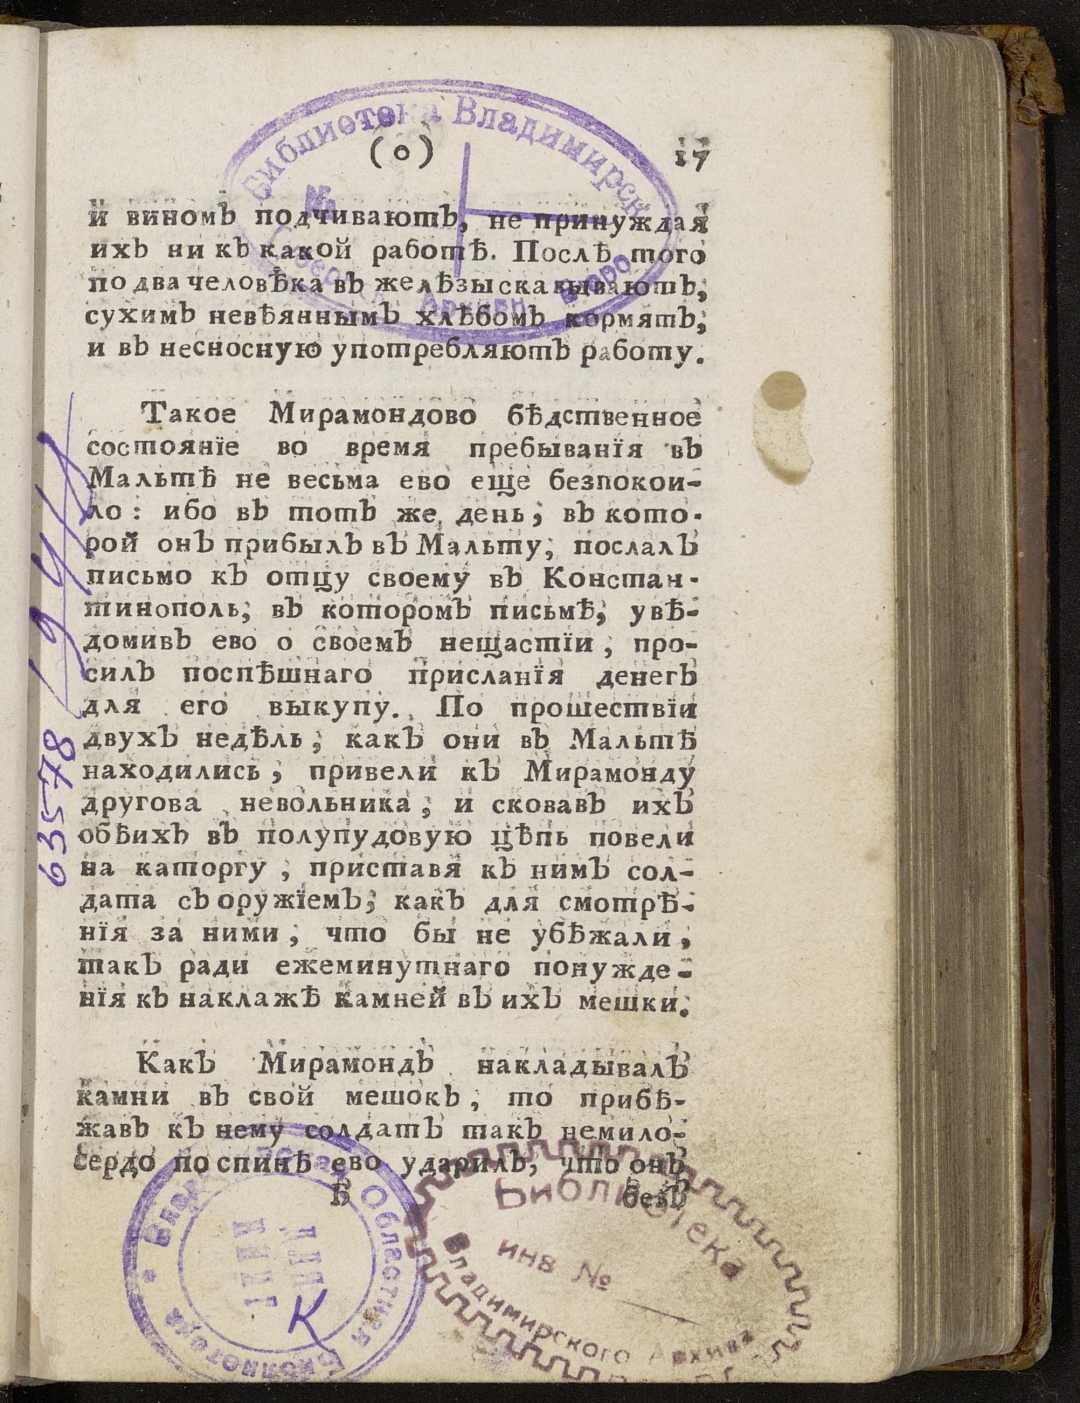 Библиотека Владимирск
(о) 17
№
и виномЪ подчиваютЪ, не принуждая
ихЪ ни кЪ какой работѢ. ПослѢ того
по два человѢка вЪ желѢзы сказываютЪ,
сухимЪ невѢяннымЪ хлѢбомЪ кормятЪ,
и вЪ несносную употребляютЪ работу.
Такое Мирамондово бѢдственное
состоянїе во время пребыванїя вЪ
МальтѢ не весьма ево еще безпокои-
ло: ибо вЪ тотЪ же день, вЪ кото-
рой онЪ прибылЪ вЪ Мальту, послалЪ
письмо кЪ отцу своему вЪ Констан-
тинополь, вЪ которомЪ письмѢ, увѢ-
домивЪ ево о своемЪ нещастїи, про-
силЪ поспѢшнаго присланїя денегЪ
для его выкупу. По прошествїи
двухЪ недѢль, какЪ они вЪ МальтѢ
находились, привели кЪ Мирамонду
другова невольника, и сковавЪ ихЪ
обѢихЪ вЪ полупудовую цѢпь повели
на каторгу, приставя кЪ нимЪ сол-
дата сЪ оружїемЪ, какЪ для смотрѢ-
нїя за ними, что бы не убѢжали,
такЪ ради ежеминутнаго понужде-
нїя кЪ наклажѢ камней вЪ ихЪ мешки.
КакЪ МирамондЪ накладывалЪ
камни вЪ свой мешокЪ, то прибѢ-
жавЪ кЪ нему солдатЪ такЪ немило-
сердо по спинѢ ево ударилЪ, что онЪ
Б безЪ
63578
Областная Библиотека
К
Библиотека
инв №
Владимирского Архива